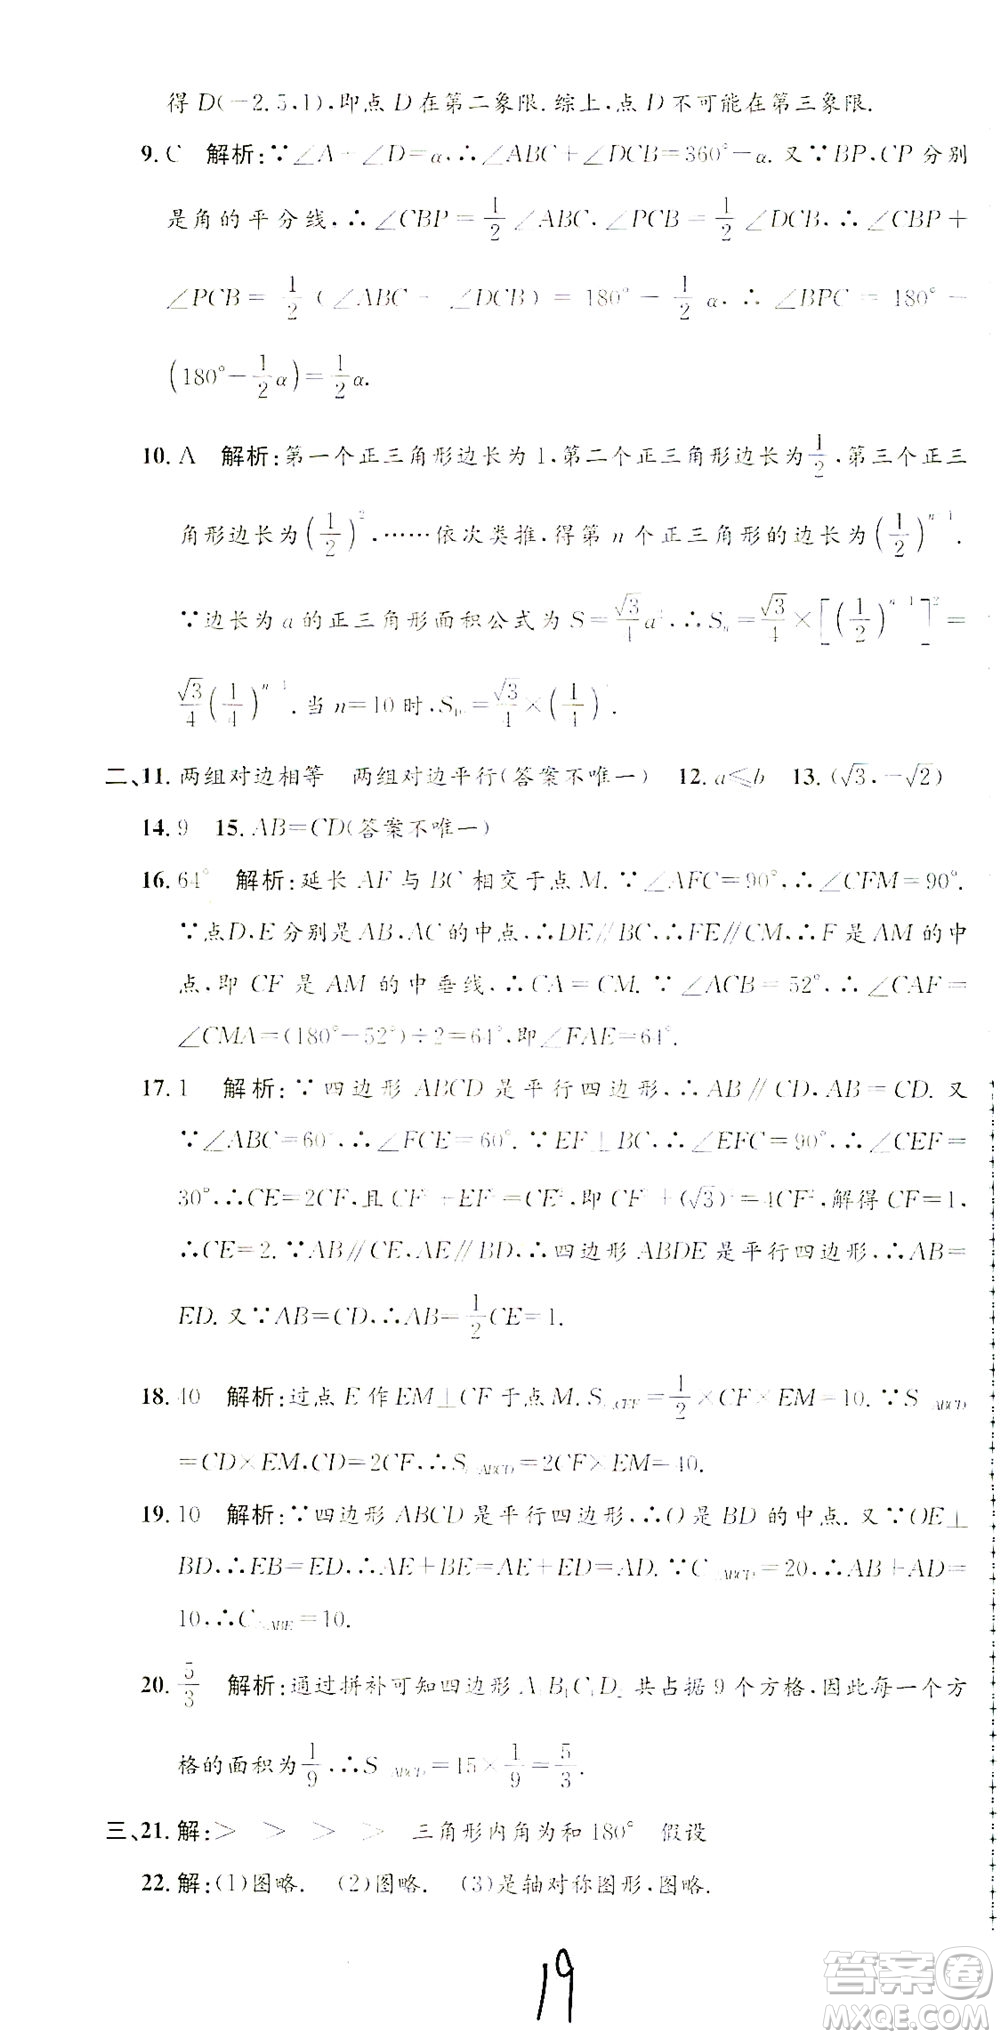 得D(-2.5,1),即点D在第二象限.综上,点D不可能在第三象限.
9. C 解析:∵∠A-∠D=α,∴∠ABC+∠DCB=360°-α.又∵BP,CP分别
是角的平分线,∴∠CBP=1/2∠ABC,∠PCB=1/2∠DCB,∴∠CBP+
∠PCB=1/2(∠ABC-∠DCB)=180°-1/2α,∴∠BPC=180°-
(180°-1/2α)=1/2α.
10. A 解析:第一个正三角形边长为1,第二个正三角形边长为1/2,第三个正三
角形边长为(1/2)²,……依次类推,得第n个正三角形的边长为(1/2)^(n-1).
∵边长为a的正三角形面积公式为S=√3/4a²,∴Sₙ=√3/4×[(1/2)^(n-1)]²=
√3/4(1/4)^(n-1).当n=10时,S₁₀=√3/4×(1/4)⁹.
二、11. 两组对边相等 两组对边平行(答案不唯一) 12. a≤b 13. (√3,-√2)
14. 9 15. AB=CD(答案不唯一)
16. 64° 解析:延长AF与BC相交于点M.∵∠AFC=90°,∴∠CFM=90°.
∵点D,E分别是AB,AC的中点,∴DE∥BC,∴FE∥CM,∴F是AM的中
点,即CF是AM的中垂线,∴CA=CM.∵∠ACB=52°,∴∠CAF=
∠CMA=(180°-52°)÷2=64°,即∠FAE=64°.
17. 1 解析:∵四边形ABCD是平行四边形,∴AB∥CD,AB=CD.又
∵∠ABC=60°,∴∠FCE=60°.∵EF⊥BC,∴∠EFC=90°,∴∠CEF=
30°,∴CE=2CF,且CF²+EF²=CE²,即CF²+(√3)²=4CF²,解得CF=1,
∴CE=2.∵AB∥CD,AE∥BD,∴四边形ABDE是平行四边形,∴AB=
ED.又∵AB=CD,∴AB=1/2CE=1.
18. 40 解析:过点E作EM⊥CF于点M.S△CEF=1/2×CF×EM=10.∵S ABCD
=CD×EM,CD=2CF,∴S ABCD=2CF×EM=40.
19. 10 解析:∵四边形ABCD是平行四边形,∴O是BD的中点.又∵OE⊥
BD,∴EB=ED,∴AE+BE=AE+ED=AD.∵C ABCD=20,∴AB+AD=
10,∴C△ABE=10.
20. 5/3 解析:通过拼补可知四边形A₁B₁C₁D₁共占据9个方格,因此每一个方
格的面积为1/9,∴S ABCD=15×1/9=5/3.
三、21. 解:> > > > 三角形内角为和180° 假设
22. 解:(1)图略. (2)图略. (3)是轴对称图形,图略.
19
答案圈
MXQE.COM